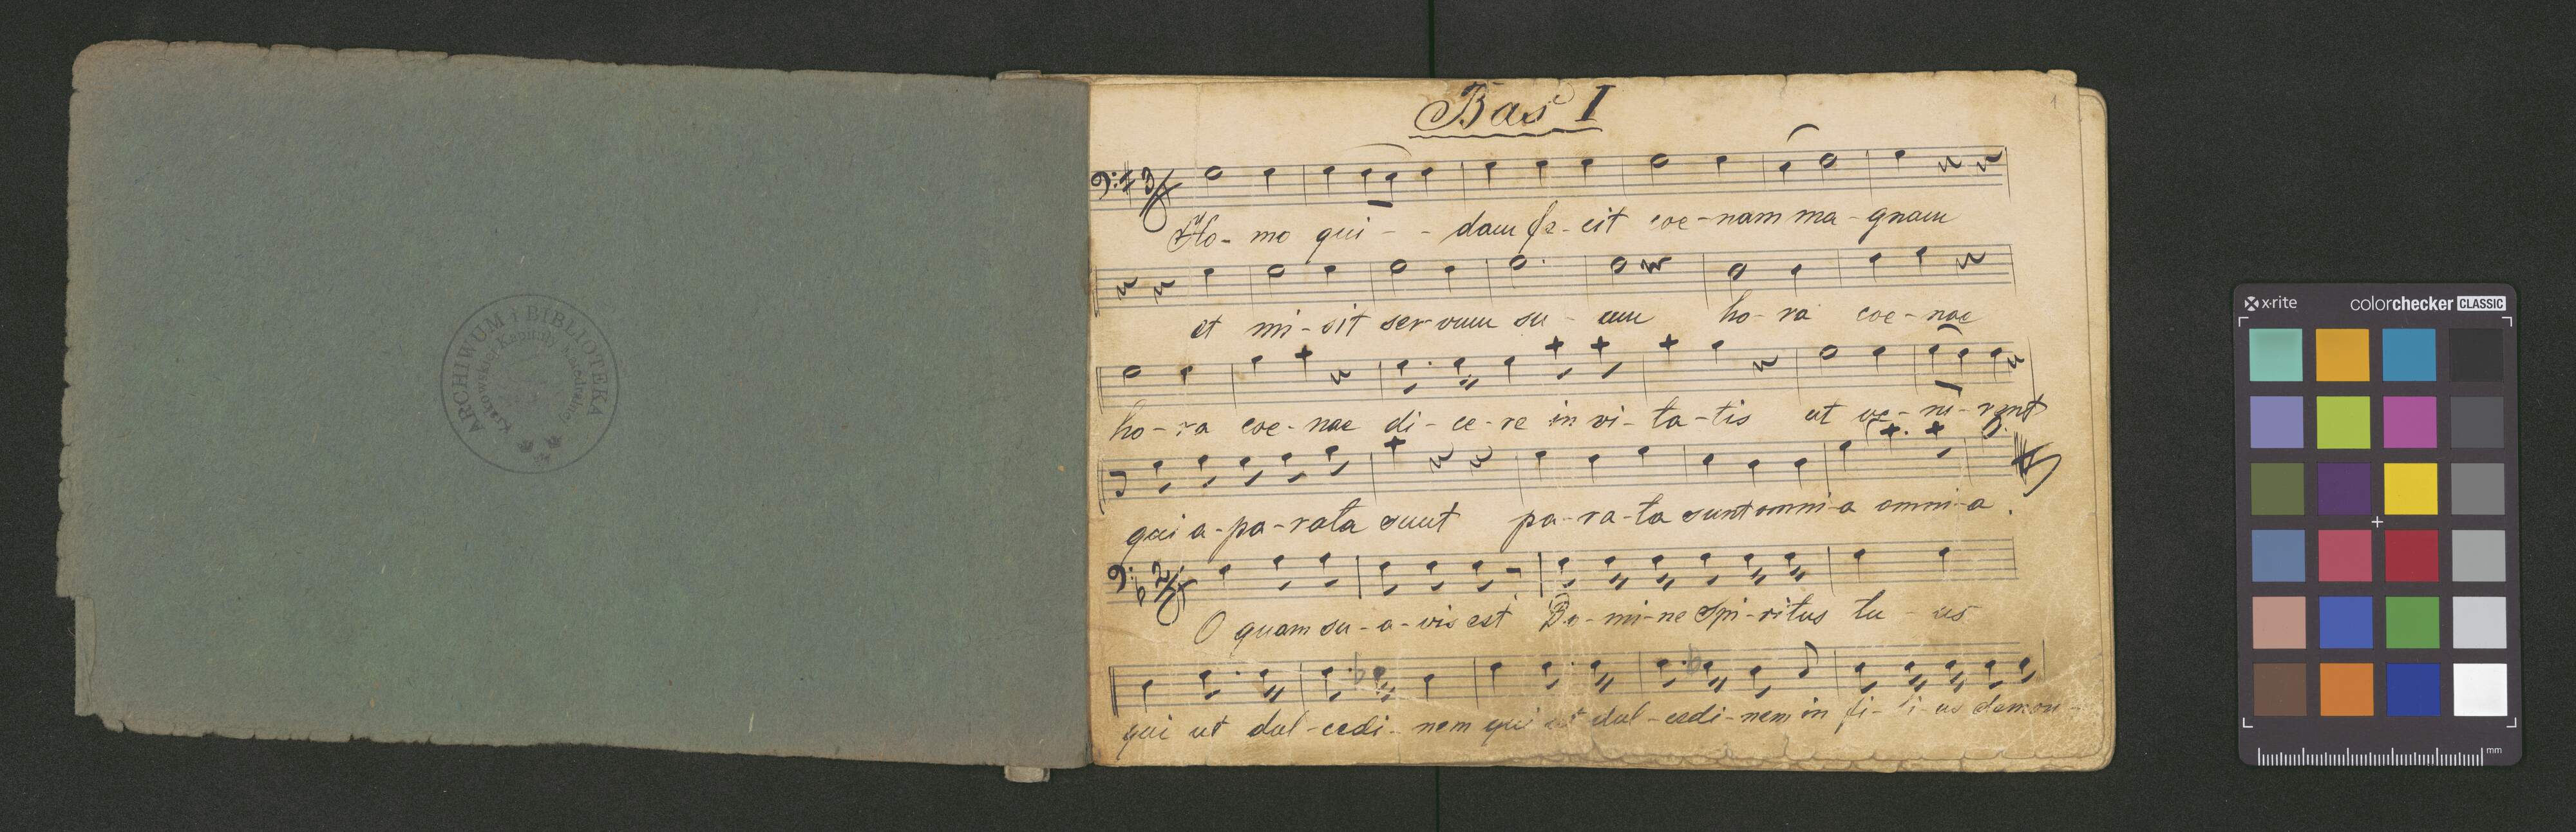 ARCHIWUM i BIBLIOTEKA
Krakowskiej Kapituły Katedralnej
1
Bas I
Ho- mo qui - - dam fe- cit coe-nam ma-gnam
et mi-sit ser-vum su-um ho-ra coe-nae
ho-ra coe-nae di-ce-re in vi-ta-tis ut ve-ni-rent
qui a-pa-rata sunt pa-ra-ta sunt omni-a omni-a.
O quam su-a-vis est Do-mi-ne Spi-ritus tu-us
qui ut dul-cedi-nem qui ut dul-cedi-nem in fi-li-os demon-
x·rite
colorchecker CLASSIC
mm